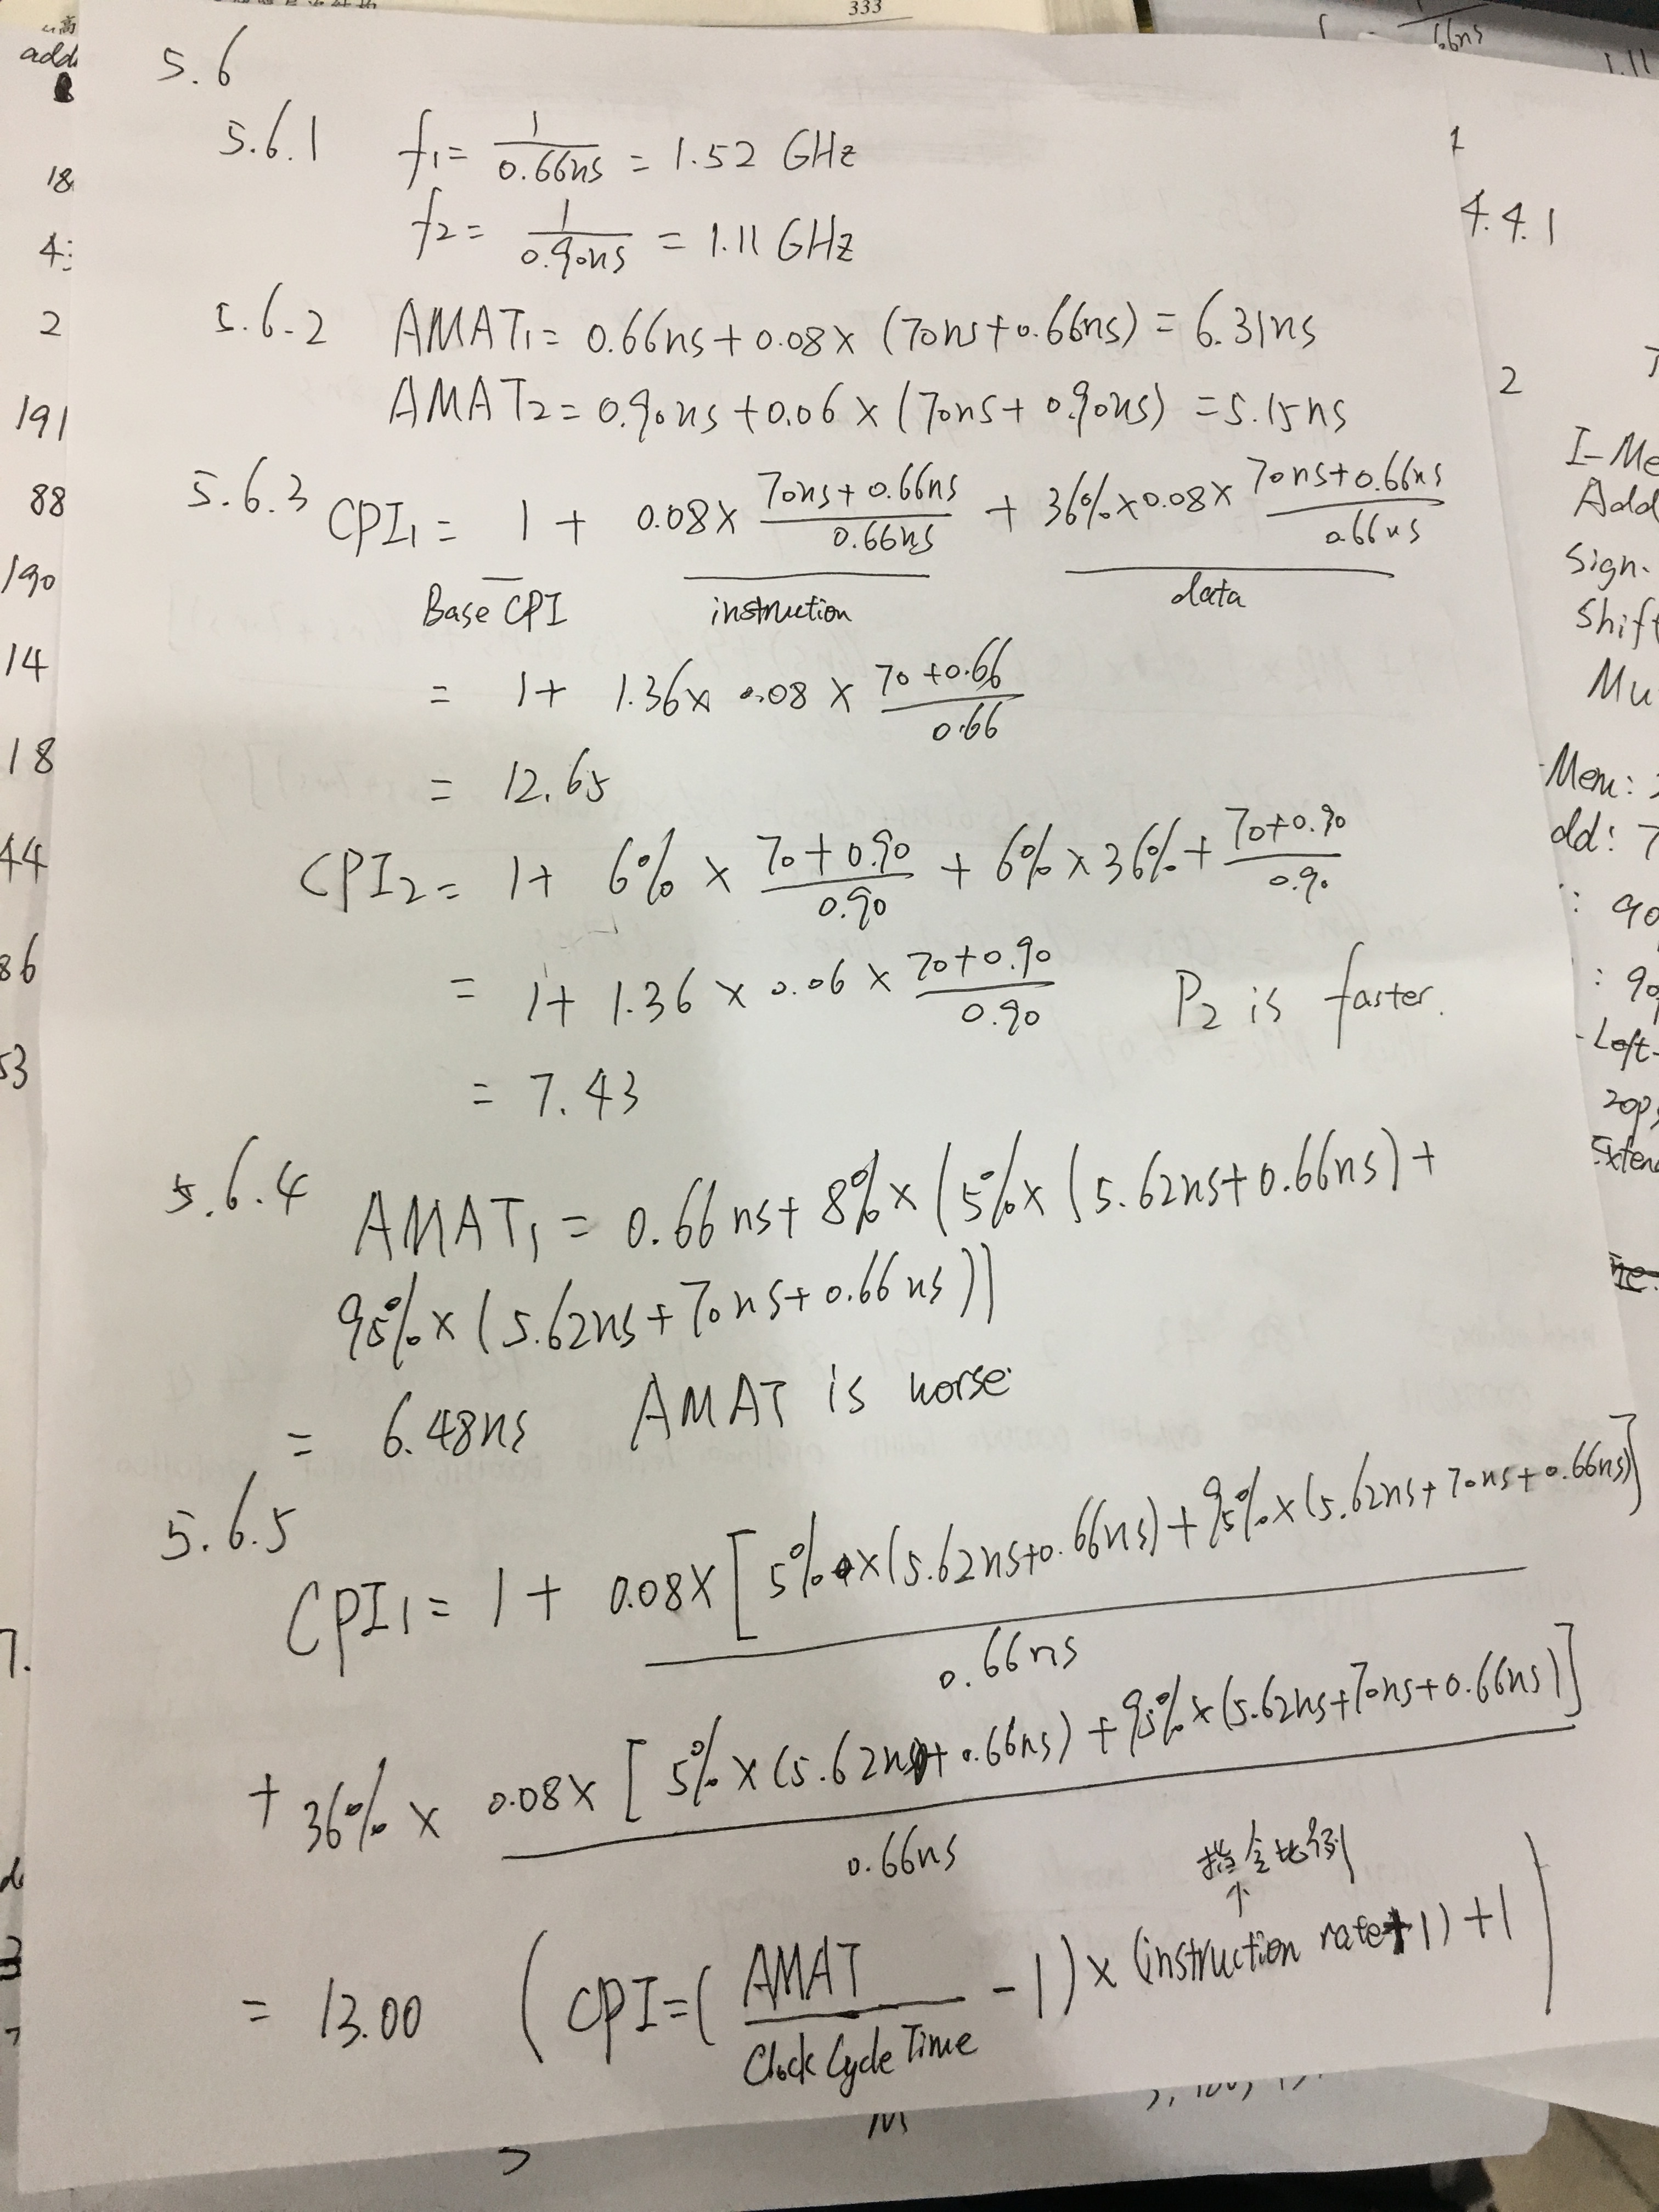 333
5.6
5.6.1 f₁ = 1/0.66ns = 1.52 GHz
f₂ = 1/0.90ns = 1.11 GHz
5.6.2 AMAT₁ = 0.66ns + 0.08 × (70ns + 0.66ns) = 6.31ns
AMAT₂ = 0.90ns + 0.06 × (70ns + 0.90ns) = 5.15ns
5.6.3 CPI₁ = 1 + 0.08 × (70ns + 0.66ns)/0.66ns + 36% × 0.08 × (70ns + 0.66ns)/0.66ns
Base CPI instruction data
= 1 + 1.36 × 0.08 × (70 + 0.66)/0.66
= 12.65
CPI₂ = 1 + 6% × (70 + 0.90)/0.90 + 6% × 36% + (70 + 0.90)/0.90
= 1 + 1.36 × 0.06 × (70 + 0.90)/0.90 P₂ is faster.
= 7.43
5.6.4 AMAT₁ = 0.66ns + 8% × (5% × (5.62ns + 0.66ns) +
95% × (5.62ns + 70ns + 0.66ns))
= 6.48ns AMAT is worse
5.6.5
CPI₁ = 1 + 0.08 × [5% × (5.62ns + 0.66ns) + 95% × (5.62ns + 70ns + 0.66ns)]
0.66ns
+ 36% × 0.08 × [5% × (5.62ns + 0.66ns) + 95% × (5.62ns + 70ns + 0.66ns)]
0.66ns
指令比例
↑
= 13.00 (CPI = (AMAT/Clock Cycle Time - 1) × (instruction rate + 1) + 1)
add
18
4:
2
191
88
190
14
18
44
86
53
7.
.66ns
1.11
1
4.4.1
2
I-Me
Add
Sign-
Shift
Mu
Mem:
dd: 7
: 90
: 90
-Left-
20ps
Extend